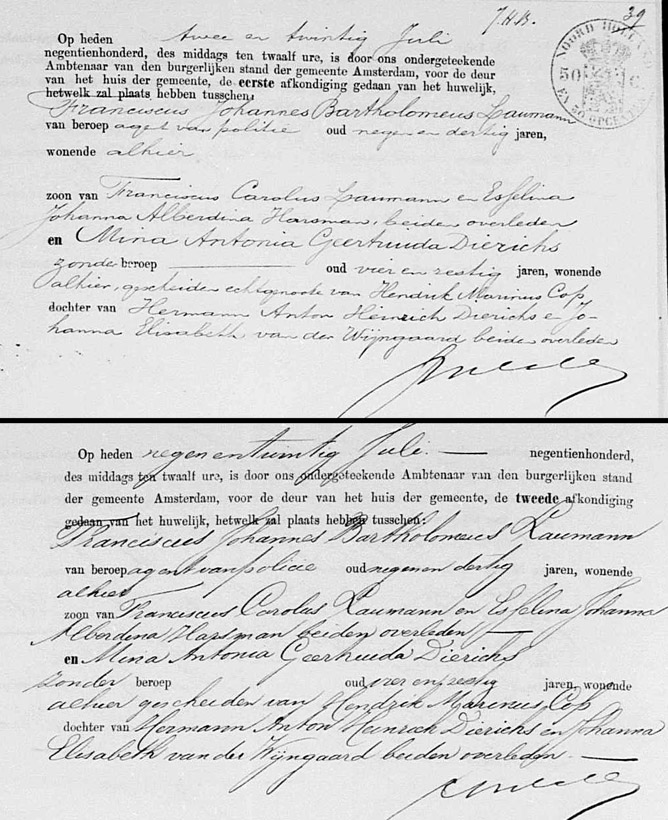 39
J.H.B.
NOORD HOLLAND
50 C.
EN 50 OPCENTEN
Op heden twee en twintig Juli
negentienhonderd, des middags ten twaalf ure, is door ons ondergeteekende
Ambtenaar van den burgerlijken stand der gemeente Amsterdam, voor de deur
van het huis der gemeente, de eerste afkondiging gedaan van het huwelijk,
hetwelk zal plaats hebben tusschen:
Franciscus Johannes Bartholomeus Laumann
van beroep agent van politie oud negen en dertig jaren,
wonende alhier
zoon van Franciscus Carolus Laumann en Esselina
Johanna Alberdina Harsman, beiden overleden
en Mina Antonia Geertruida Dierichs
zonder beroep oud vier en zestig jaren, wonende
alhier, gescheiden echtgenoote van Hendrik Marinus Cop,
dochter van Hermann Anton Heinrich Dierichs en Jo-
hanna Elisabeth van den Wijngaard beiden overleden
Op heden negen en twintig Juli. negentienhonderd,
des middags ten twaalf ure, is door ons ondergeteekende Ambtenaar van den burgerlijken stand
der gemeente Amsterdam, voor de deur van het huis der gemeente, de tweede afkondiging
gedaan van het huwelijk, hetwelk zal plaats hebben tusschen:
Franciscus Johannes Bartholomeus Laumann
van beroep agent van policie oud negen en dertig jaren, wonende
alhier
zoon van Franciscus Carolus Laumann en Esselina Johanna
Alberdina Harsman beiden overleden
en Mina Antonia Geertruida Dierichs
zonder beroep oud vier en zestig jaren, wonende
alhier gescheiden van Hendrik Marinus Cop
dochter van Hermann Anton Heinrich Dierichs en Johanna
Elisabeth van der Wijngaard beiden overleden.